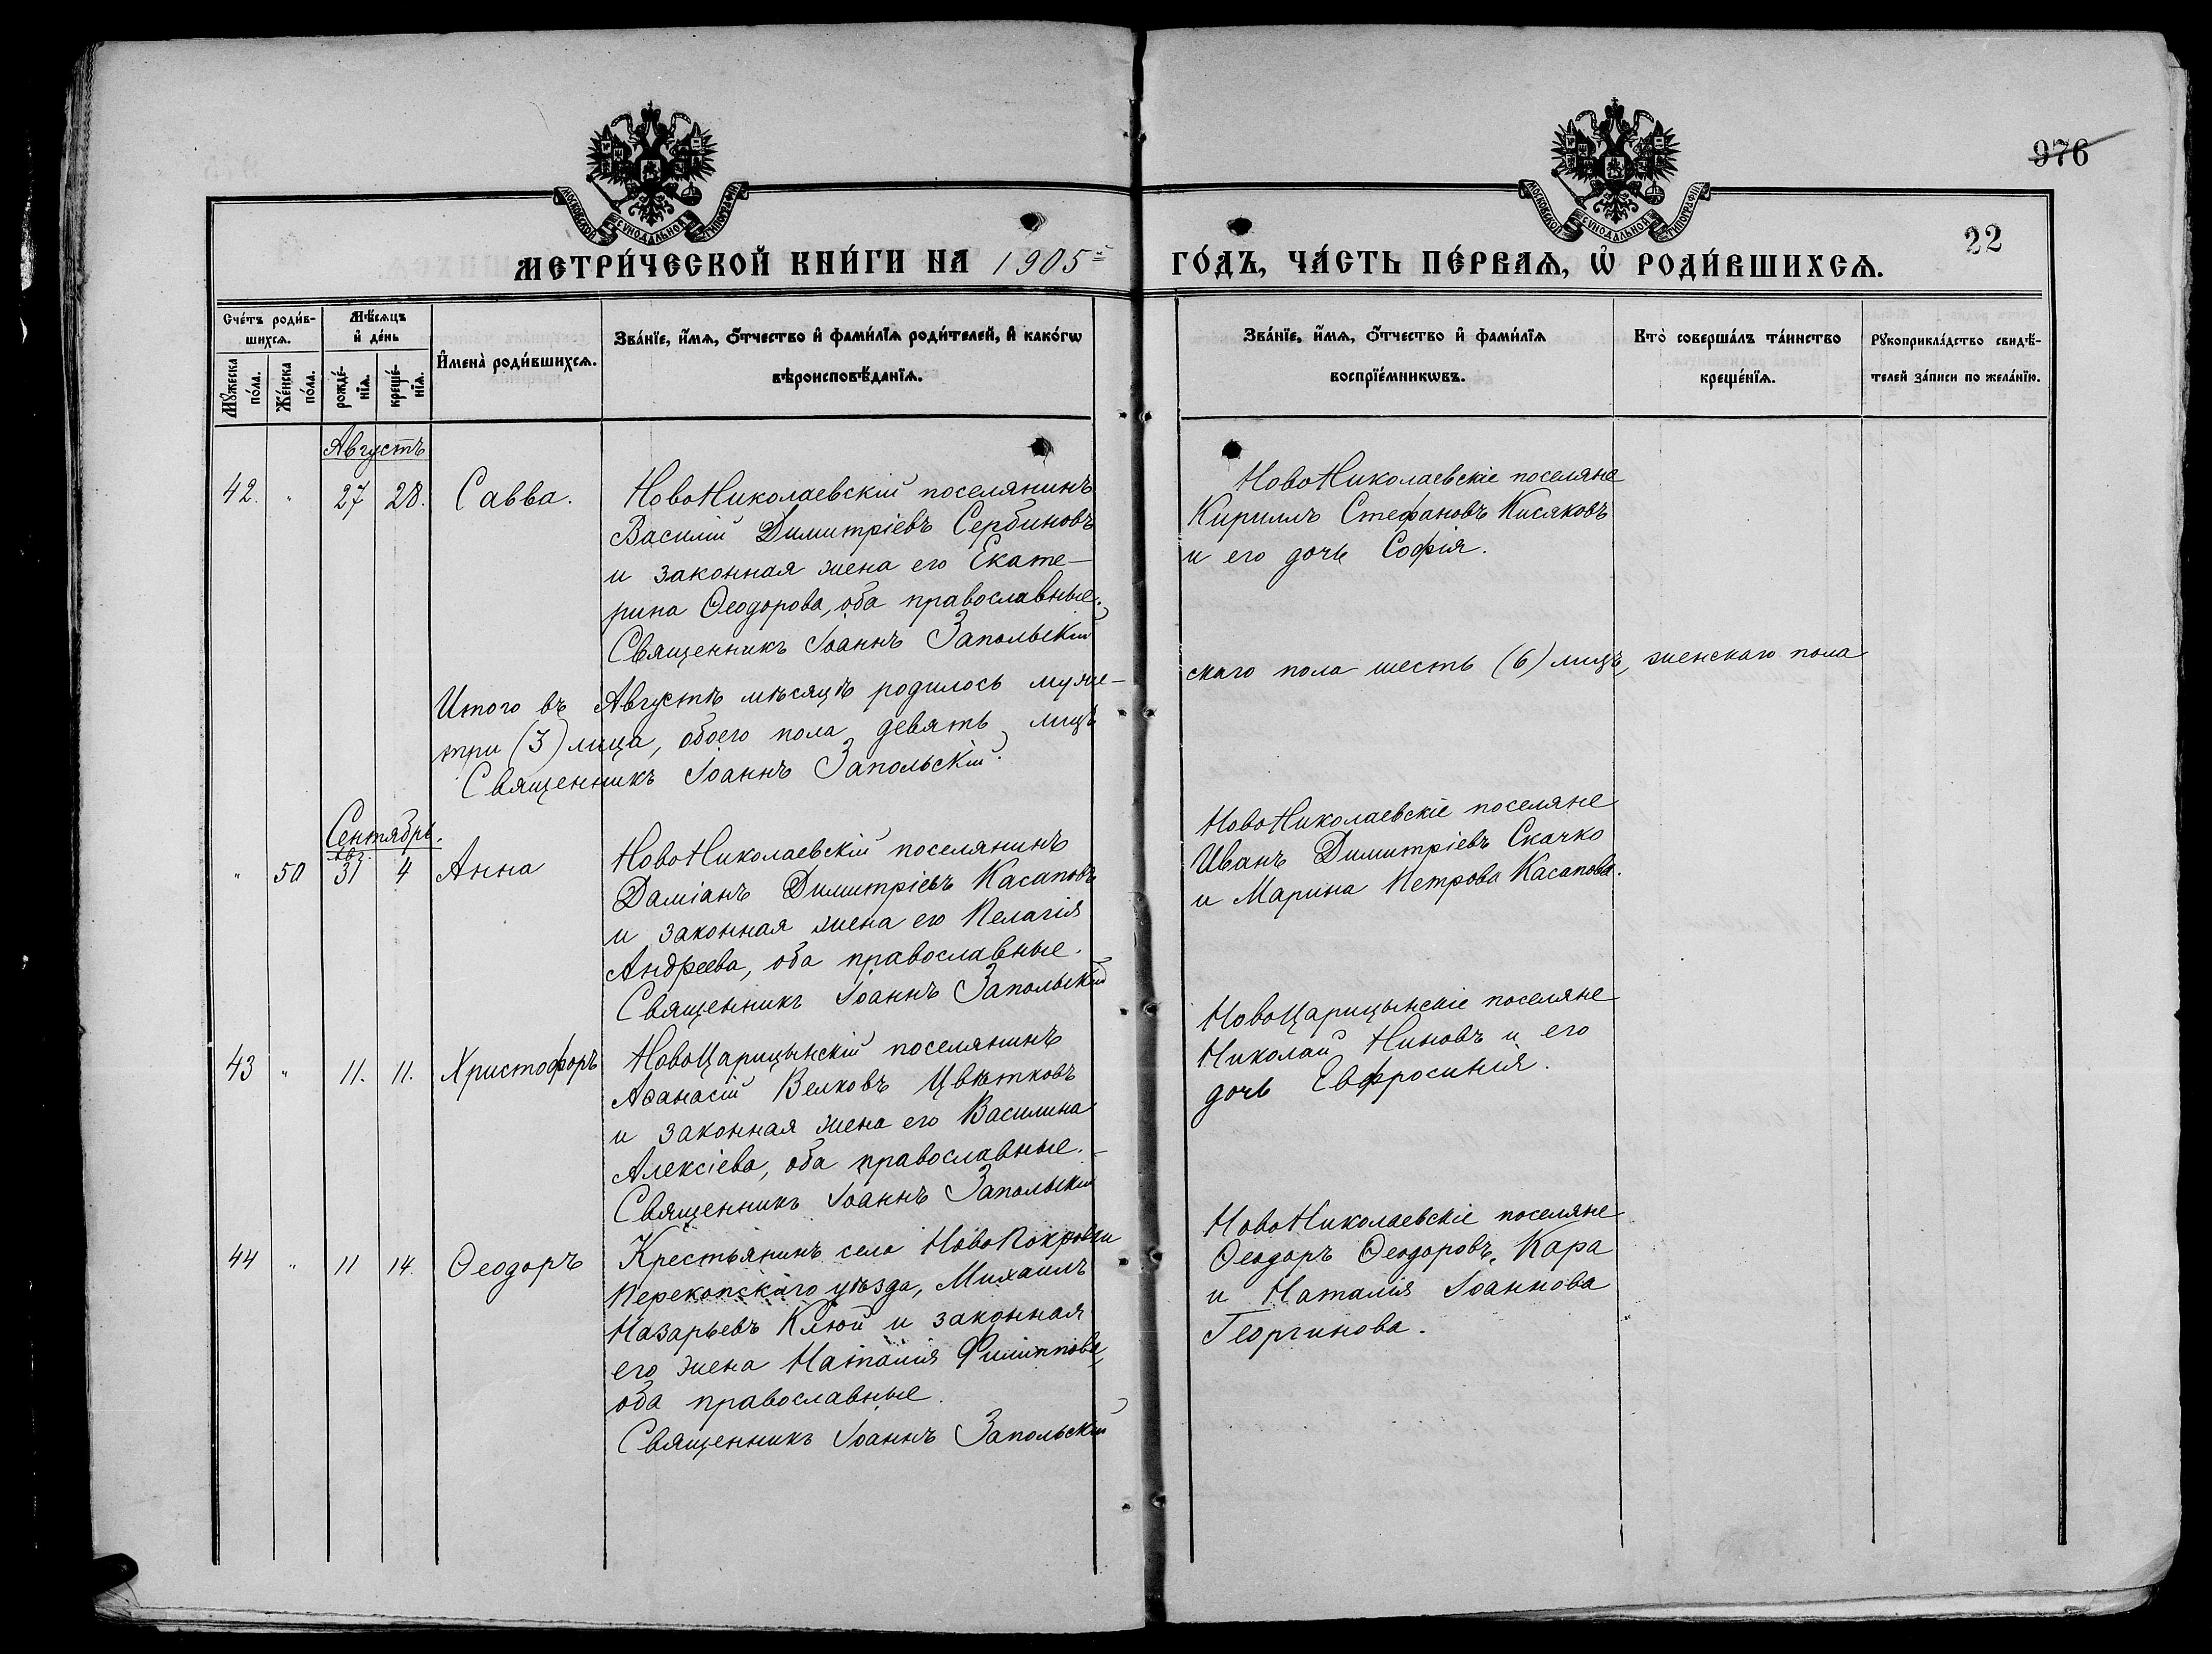 976
22
МОСКОВСКОЙ СѴНОДАЛЬНОЙ ТИПОГРАФІИ
МОСКОВСКОЙ СѴНОДАЛЬНОЙ ТИПОГРАФІИ
МЕТРИ́ЧЕСКОЙ КНИ́ГИ НА 1905й ГО́ДЪ, ЧА́СТЬ ПЕ́РВАѦ, Ѽ РОДИ́ВШИХСѦ.
Сче́тъ роди́в-
шихсѧ.
Мꙋ́жеска по́ла.
Же́нска по́ла.
Мѣ́сѧцъ и҆ де́нь
рожде́-нїѧ.
креще́-нїѧ.
И҆мена̀ роди́вшихсѧ.
Зва́нїе, и҆́мѧ, ѻ҆́тчество и҆ фами́лїѧ роди́телей, и҆ како́гѡ
вѣроисповѣ́данїѧ.
Зва́нїе, и҆́мѧ, ѻ҆́тчество и҆ фами́лїѧ
воспрїе́мникѡвъ.
Кто̀ соверша́лъ та́инство
креще́нїѧ.
Рꙋкоприкла́дство свидѣ́-
телей за́писи по жела́нїю.
Августъ
42. " 27 28. Савва. НовоНиколаевскій поселянинъ
Василій Димитріевъ Сербиновъ
и законная жена его Екате-
рина Ѳеодорова, оба православные.
Священникъ Іоаннъ Запольскій
НовоНиколаевскіе поселяне
Кириллъ Стефановъ Кисяковъ
и его дочь Софія.
Итого въ Августѣ мѣсяцѣ родилось муже-скаго пола шесть (6) лицъ, женскаго пола
три (3) лица, обоего пола девять лицъ
Священникъ Іоаннъ Запольскій.
Сентябрь.
Авг.
" 50 31 4 Анна НовоНиколаевскій поселянинъ
Даміанъ Димитріевъ Касаповъ
и законная жена его Пелагія
Андреева, оба православные.
Священникъ Іоаннъ Запольскій
НовоНиколаевскіе поселяне
Иванъ Димитріевъ Скачко
и Марина Петрова Касапова.
43 " 11. 11. Христофоръ НовоЦарицынскій поселянинъ
Аѳанасій Велковъ Цвѣтковъ
и законная жена его Василина
Алексіева, оба православные.
Священникъ Іоаннъ Запольскій
НовоЦарицынскіе поселяне
Николай Ниновъ и его
дочь Евфросинія.
44 " 11 14. Ѳеодоръ Крестьянинъ села НовоПокровки
Перекопскаго уѣзда, Михаилъ
Назарьевъ Клюй и законная
его жена Наталія Филиппова,
оба православные.
Священникъ Іоаннъ Запольскій
НовоНиколаевскіе поселяне
Ѳеодоръ Ѳеодоровъ Кара
и Наталія Іоаннова
Георгинова.